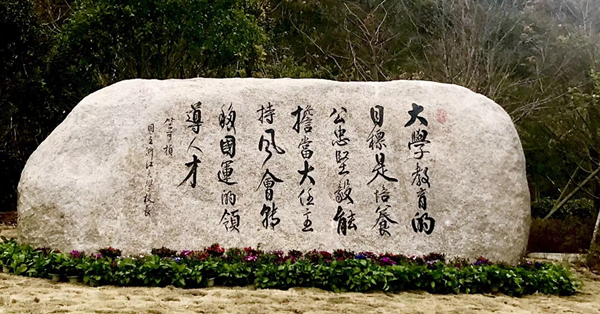 大學教育的
目標是培養
公忠堅毅能
擔當大任主
持風會轉
移國運的領
導人才
竺可楨
國立浙江大學校長